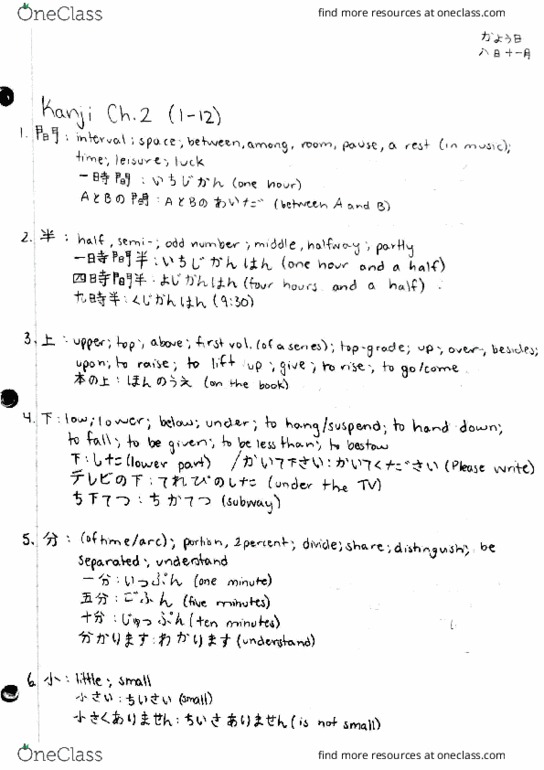 OneClass
find more resources at oneclass.com
かよう日
八日十一月
Kanji Ch.2 (1-12)
1. 間: interval; space; between, among, room, pause, a rest (in music);
time; leisure; luck
一時間: いちじかん (one hour)
AとBの間: AとBのあいだ (between A and B)
2. 半: half, semi-; odd number; middle, halfway; partly
一時間半: いちじかんはん (one hour and a half)
四時間半: よじかんはん (four hours and a half)
九時半: くじかんはん (9:30)
3. 上: upper; top; above; first vol. (of a series); top-grade; up; over-, besides;
upon; to raise; to lift up; give; to rise; to go/come
本の上: ほんのうえ (on the book)
4. 下: low; lower; below; under; to hang/suspend; to hand down;
to fall; to be given; to be less than; to bestow
下: した (lower part) / かいて下さい: かいてください (Please write)
テレビの下: てれびのした (under the TV)
ち下てつ: ちかてつ (subway)
5. 分: (of time/arc); portion, 2percent; divide; share; distinguish; be
separated; understand
一分: いっぷん (one minute)
五分: ごふん (five minutes)
十分: じゅっぷん (ten minutes)
分かります: わかります (understand)
6. 小: little; small
小さい: ちいさい (small)
小さくありません: ちいさありません (is not small)
OneClass
find more resources at oneclass.com